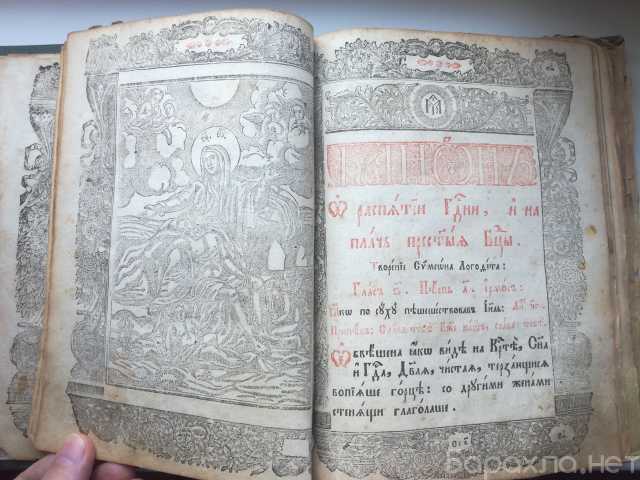 КАНѠНЪ
Ѡ распѧтїи Гд҇ни, и на
плачь прест҃ыѧ Бц҃ы.
Творенїе Сѷмеѡна Логоѳета:
Гласъ ѕ҃. Пѣснь а҃. Ірмосъ:
Ꙗкѡ по сꙋхꙋ пѣшешествовавъ Іи҃ль:
Припѣвъ: Слава тебѣ Бж҃е нашъ, слава тебѣ.
Ѡбѣшена ꙗкѡ видѣ на Крт҇ѣ, Сн҃а
и Гд҇а, Дв҃аѧ, чистаѧ, терзающисѧ
вопїѧше горцѣ: со дрꙋгими женами
стенѧщи глаголаше.
барахла.нет